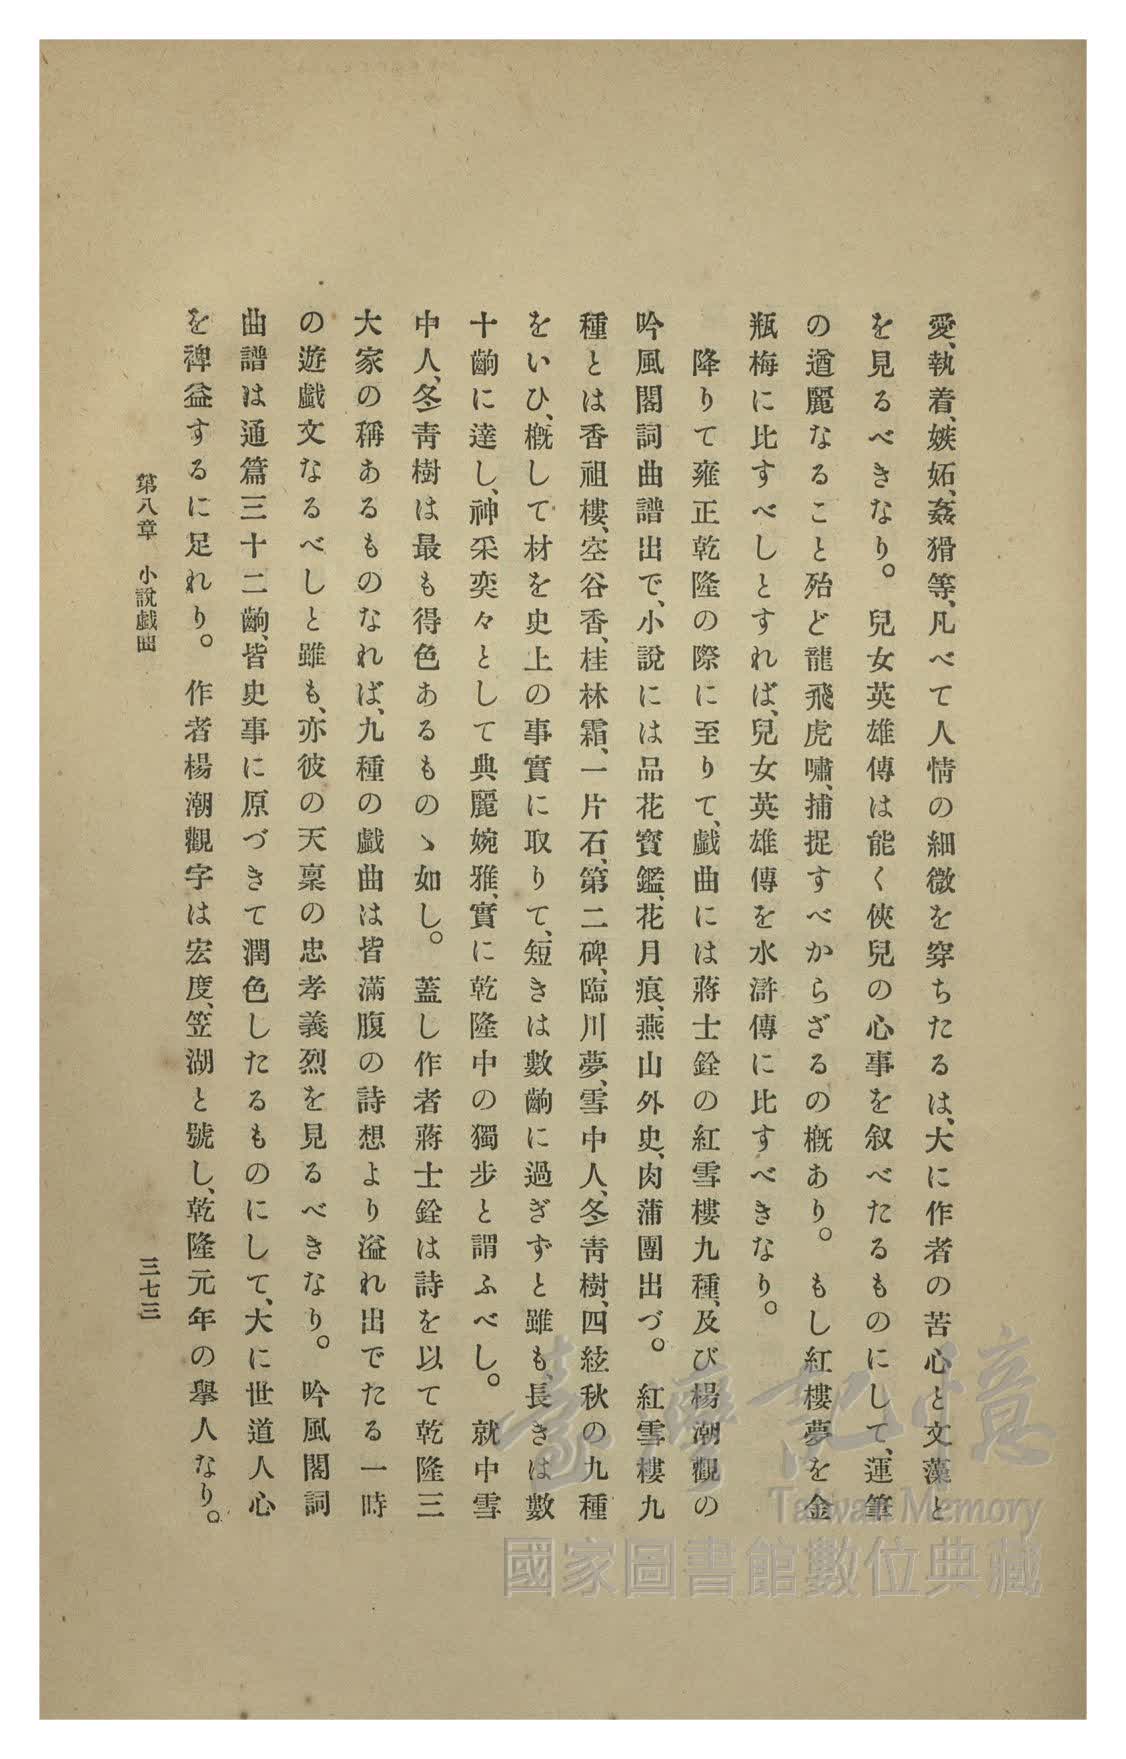 愛、執着、嫉妬、姦猾等、凡べて人情の細微を穿ちたるは、大に作者の苦心と文藻と
を見るべきなり。兒女英雄傳は能く俠兒の心事を叙べたるものにして、運筆
の遒麗なること殆ど龍飛虎嘯、捕捉すべからざるの概あり。もし紅樓夢を金
瓶梅に比すべしとすれば、兒女英雄傳を水滸傳に比すべきなり。
降りて雍正乾隆の際に至りて、戲曲には蔣士銓の紅雪樓九種、及び楊潮觀の
吟風閣詞曲譜出で、小說には品花寶鑑、花月痕、燕山外史、肉蒲團出づ。紅雪樓九
種とは香祖樓、空谷香、桂林霜、一片石、第二碑、臨川夢、雪中人、冬靑樹、四絃秋の九種
をいひ、概して材を史上の事實に取りて、短きは數齣に過ぎずと雖も、長きは數
十齣に達し、神采奕々として典麗婉雅、實に乾隆中の獨步と謂ふべし。就中雪
中人、冬靑樹は最も得色あるものゝ如し。蓋し作者蔣士銓は詩を以て乾隆三
大家の稱あるものなれば、九種の戲曲は皆滿腹の詩想より溢れ出でたる一時
の遊戲文なるべしと雖も、亦彼の天稟の忠孝義烈を見るべきなり。吟風閣詞
曲譜は通篇三十二齣、皆史事に原づきて潤色したるものにして、大に世道人心
を裨益するに足れり。作者楊潮觀字は宏度、笠湖と號し、乾隆元年の擧人なり。
第八章 小說戲曲
三七三
臺灣記憶
Taiwan Memory
國家圖書館數位典藏